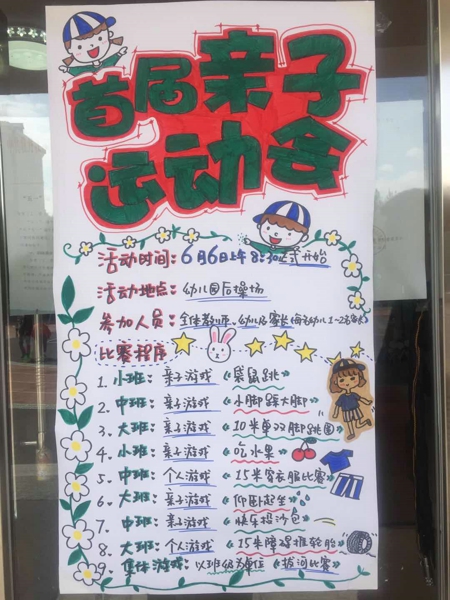 首届亲子
运动会
活动时间：6月6日上午8:30正式开始
活动地点：幼儿园后操场
参加人员：全体教师、幼儿及家长(每名幼儿1~2名家长)
比赛程序
1. 小班：亲子游戏《袋鼠跳》
2. 中班：亲子游戏《小脚踩大脚》
3. 大班：亲子游戏《10米单双脚跳圈》
4. 小班：亲子游戏《吃水果》
5. 中班：个人游戏《15米穿衣服比赛》
6. 大班：亲子游戏《仰卧起坐》
7. 中班：亲子游戏《快乐投沙包》
8. 大班：个人游戏《15米障碍推轮胎》
9. 集体游戏：以班级为单位《拔河比赛》